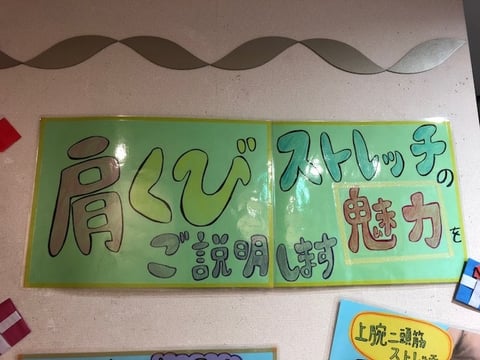 肩くび
ストレッチの
魅力を
ご説明します
上腕二頭筋
ストレッチ